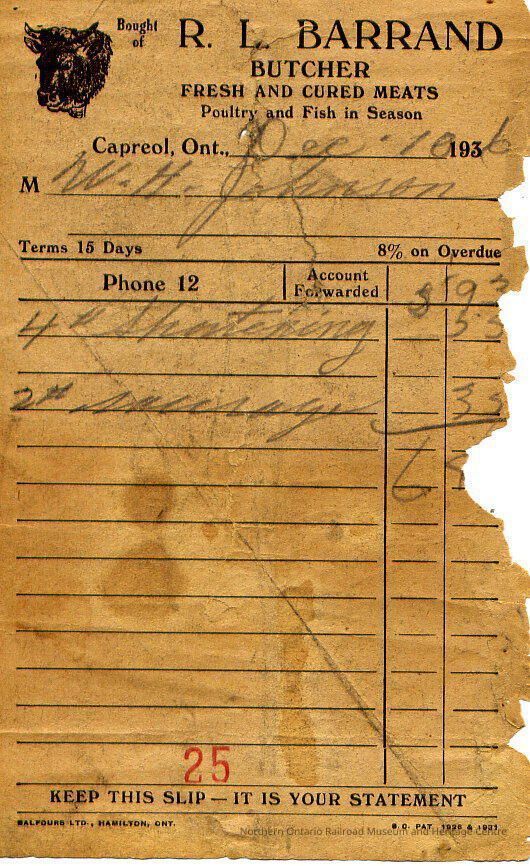 Bought of
R. L. BARRAND
BUTCHER
FRESH AND CURED MEATS
Poultry and Fish in Season
Capreol, Ont., Dec. 10 1936
M W. H. Johnson
Terms 15 Days 8% on Overdue
Phone 12 Account Forwarded 5 93
4# Shortening 55
2# sausage 35
6
25
KEEP THIS SLIP — IT IS YOUR STATEMENT
BALFOURS LTD., HAMILTON, ONT. S.O. PAT. 1926 & 1931
Northern Ontario Railroad Museum and Heritage Centre